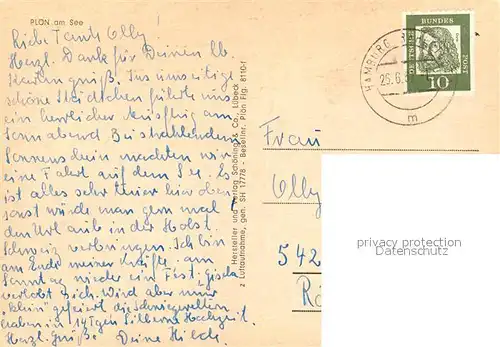 PLÖN am See
Liebe Tante Olly!
Herzl. Dank für Deinen lb.
Kartengruß. Ins umseitige
schöne Städtchen führte uns
ein herrlicher Ausflug am
Sonnabend. Bei strahlendem
Sonnenschein machten wir
eine Fahrt auf dem See. Es
ist alles sehr teuer hier oben
sonst würde man gern mal
den Url. aub in der Holst.
Schweiz verbringen. Ich bin
am Ende meiner Kräfte, am
Sonntag wieder ein Fest, Gisela
verlobt sich. Wird aber nur
"klein" gefeiert, die Schwiegereltern
haben in 14 Tgen Silberne Hochzeit.
Herzl. Grüße Deine Hilde.
Hersteller und Verlag Schöning & Co., Lübeck
z Luftaufnahme, gen. SH 17778 - Bestellnr. Plön Flg. 8110 f
HAMBURG
25.6.
m
DEUTSCHE BUNDESPOST
10
Frau
Olly
542
privacy protection
Datenschutz